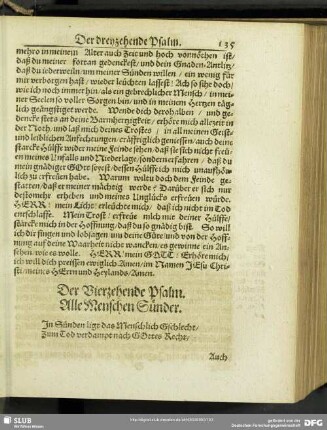 Der dreyzehende Psalm. 135
mehro in meinem Alter auch Zeit und hoch vonnöthen ist/
daß du meiner fortan gedenckest/ und dein Gnaden-Antlitz/
daß du jederweiln um meiner Sünden willen / ein wenig für
mir verborgen hast/ wieder leüchten lassest! Ach so sihe doch/
wie ich noch immerhin/ als ein gebrechlicher Mensch / in meiner
Seelen so voller Sorgen bin/ und in meinem Hertzen täglich
geängstiget werde. Wende dich derohalben / und gedencke
stets an deine Barmhertzigkeit/ erhöre mich allezeit in
der Noth/ und laß mich deines Trostes / in allen meinen Geist-
und leiblichen Anfechtungen/ kräfftiglich geniessen/ auch deine
starcke Hülffe wider meine Feinde sehen/ daß sie sich nicht freüen
meines Unfalls und Niederlage/ sondern erfahren / daß du
mein gnädiger GOtt seyest/ dessen Hülffe ich mich unaufhörlich
zu erfreüen habe. Warum wilsu doch dem Feinde gestatten/
daß er meiner mächtig werde? Darüber er sich nur
destomehr erheben und meines Unglücks erfreüen würde.
HERR: mein Liecht: erleüchte mich / daß ich nicht im Tod
entschlaffe. Mein Trost / erfreüe mich mit deiner Hülffe/
stärcke mich in der Hoffnung/ daß du so gnädig bist. So will
ich dir singen und lobsagen um deine Güte/ und von der Hoffnung
auf deine Warheit nicht wancken/ es gewinne ein Ansehen/
wie es wolle. HERR/ mein GOTT: Erhöre mich/
ich will dich preissen ewiglich Amen/ im Namen JEsu Christi/
meines HErrn und Heylands/ Amen.
Der Vierzehende Psalm.
Alle Menschen Sünder.
In Sünden ligt das Menschlich Gschlecht/
Zum Tod verdampt nach GOttes Recht/
Auch
SLUB
Wir führen Wissen.
gefördert von der
Deutschen Forschungsgemeinschaft
DFG